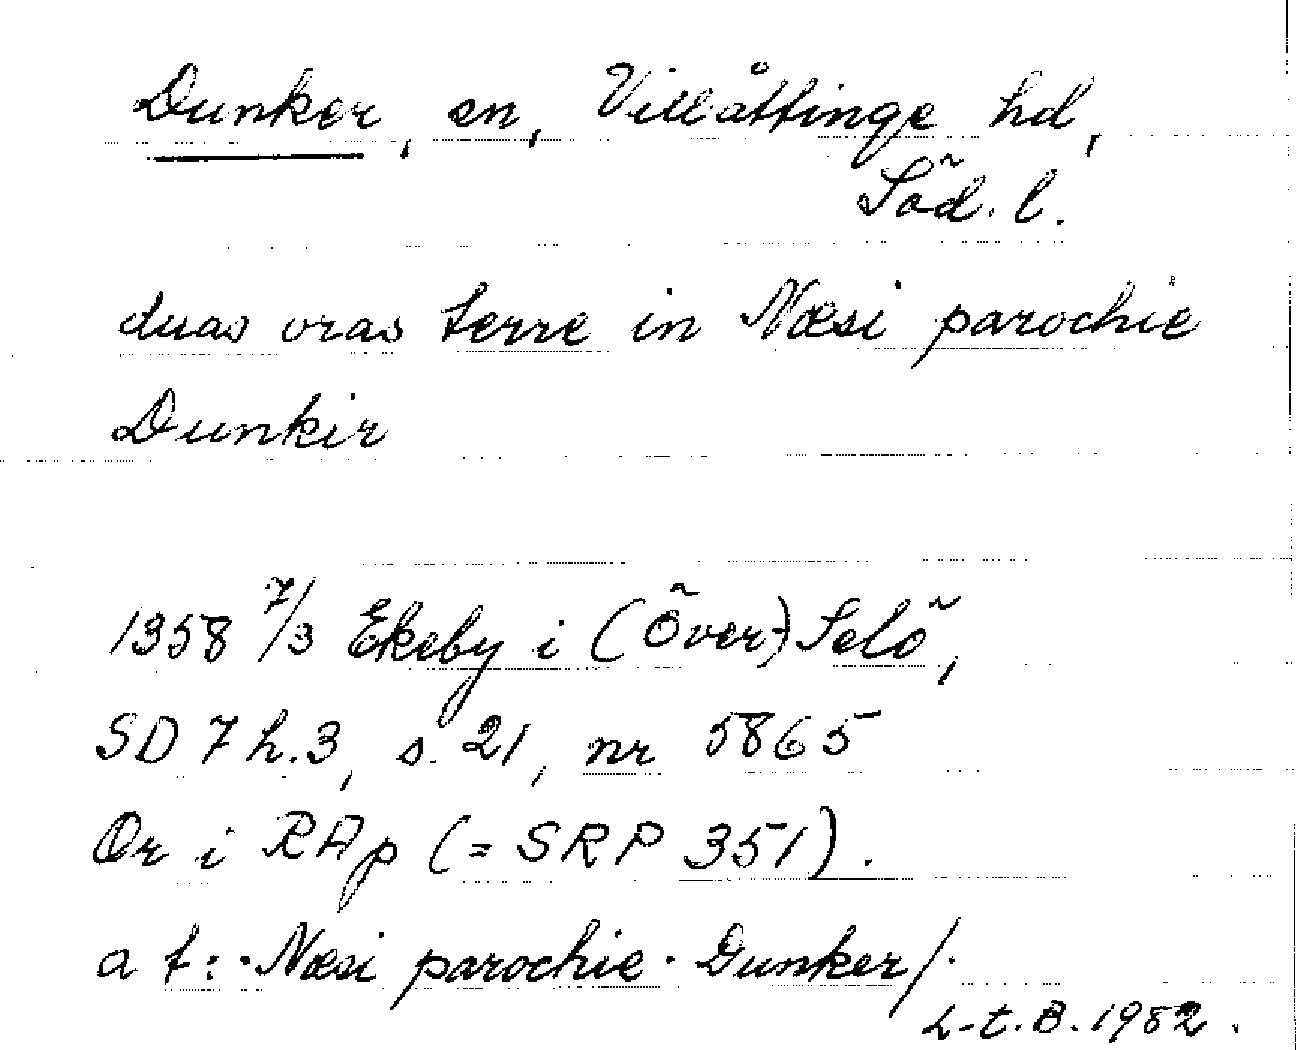 Dunker, sn, Villåttinge hd,
Söd. l.
duas oras terre in Næsi parochie
Dunkir
1358 7/3 Ekeby i (Över-)Selö,
SD 7 h.3, s. 21, nr 5865
Or i RAp (= SRP 351).
a t: · Næsi parochie · Dunker/ ·
L-t. B. 1982.